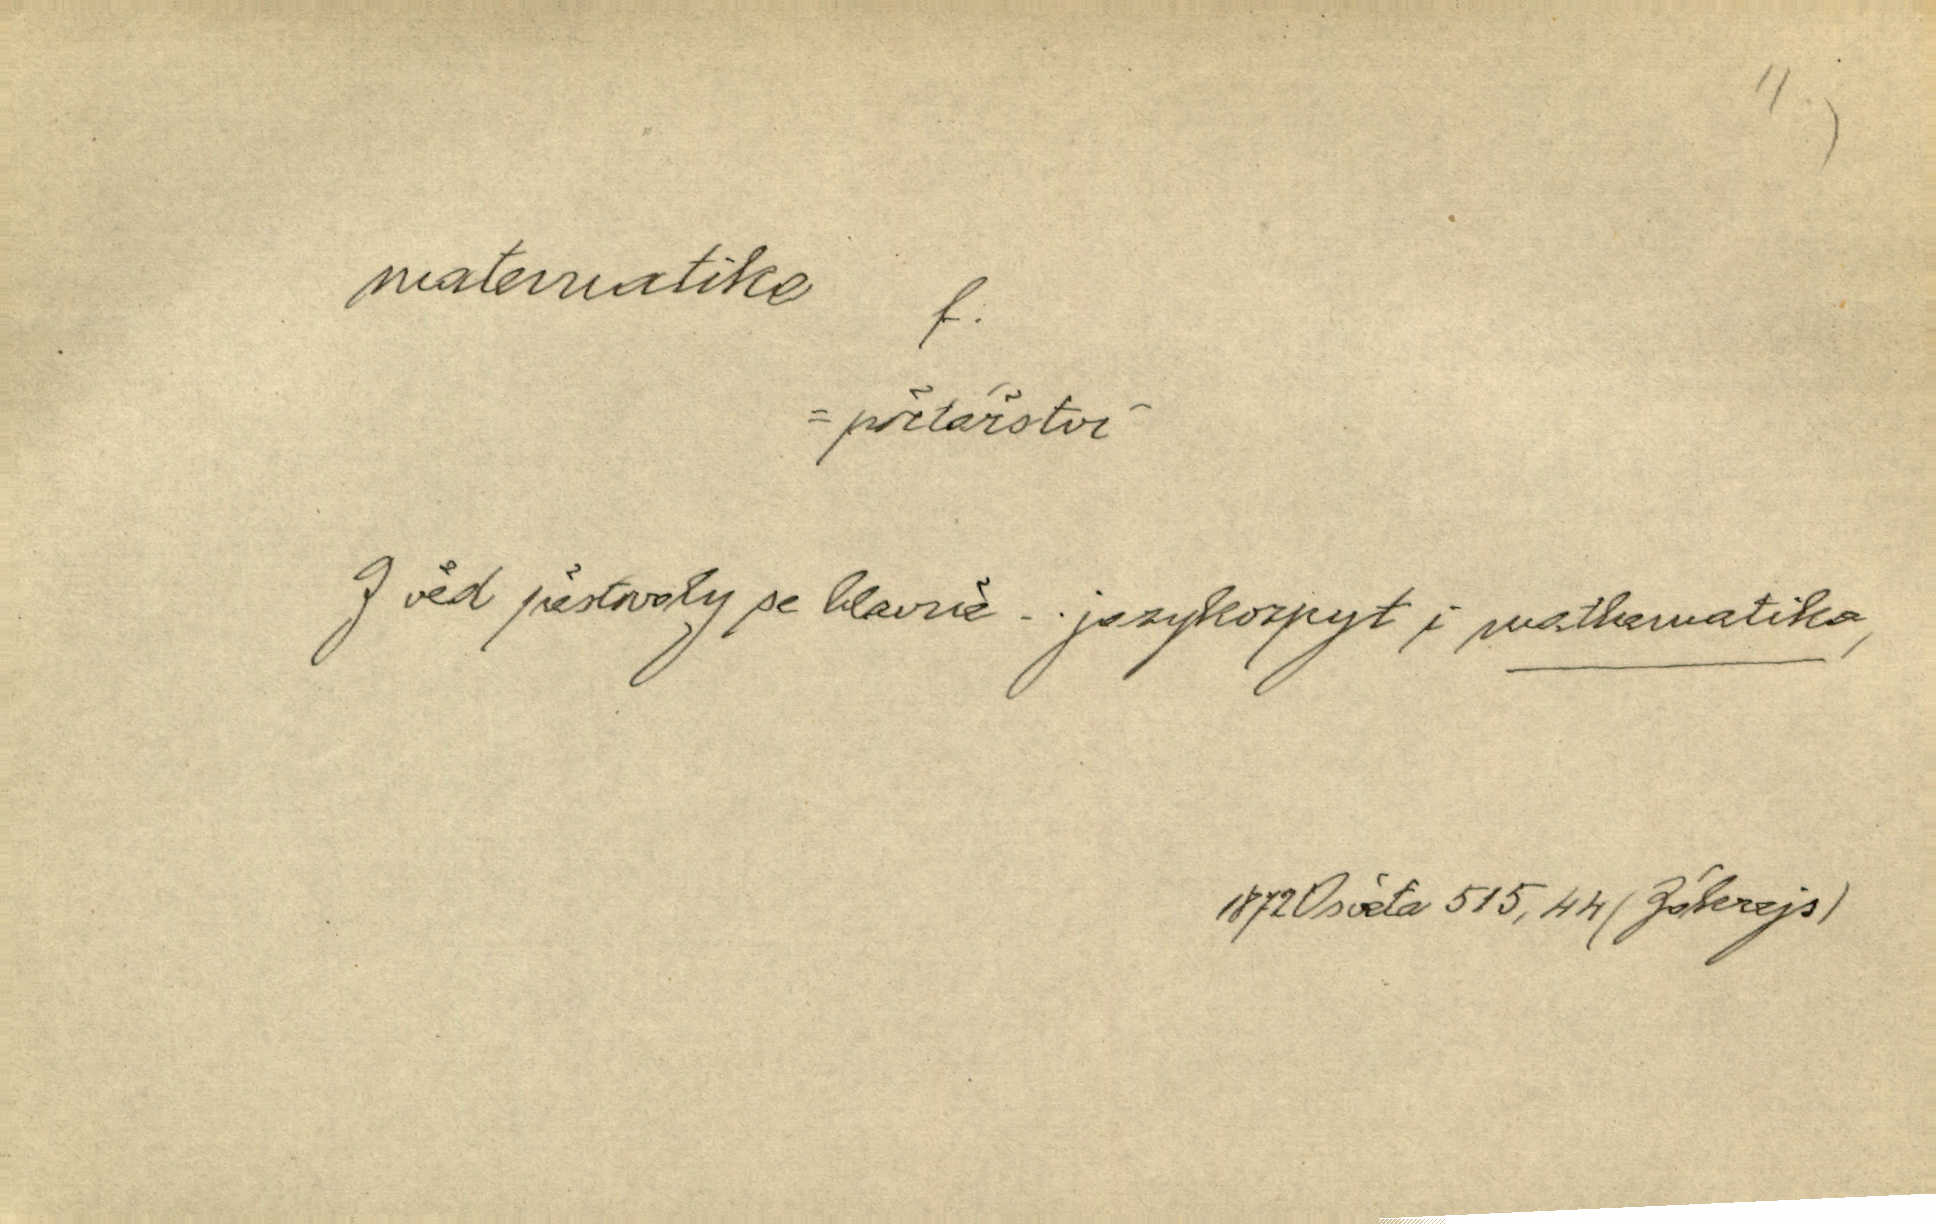 matematika f.
= počtářství
Z věd pěstovaly se hlavně - . jazykozpyt i mathematika,
1872 Osvěta 515, 44 (Zákrejs)